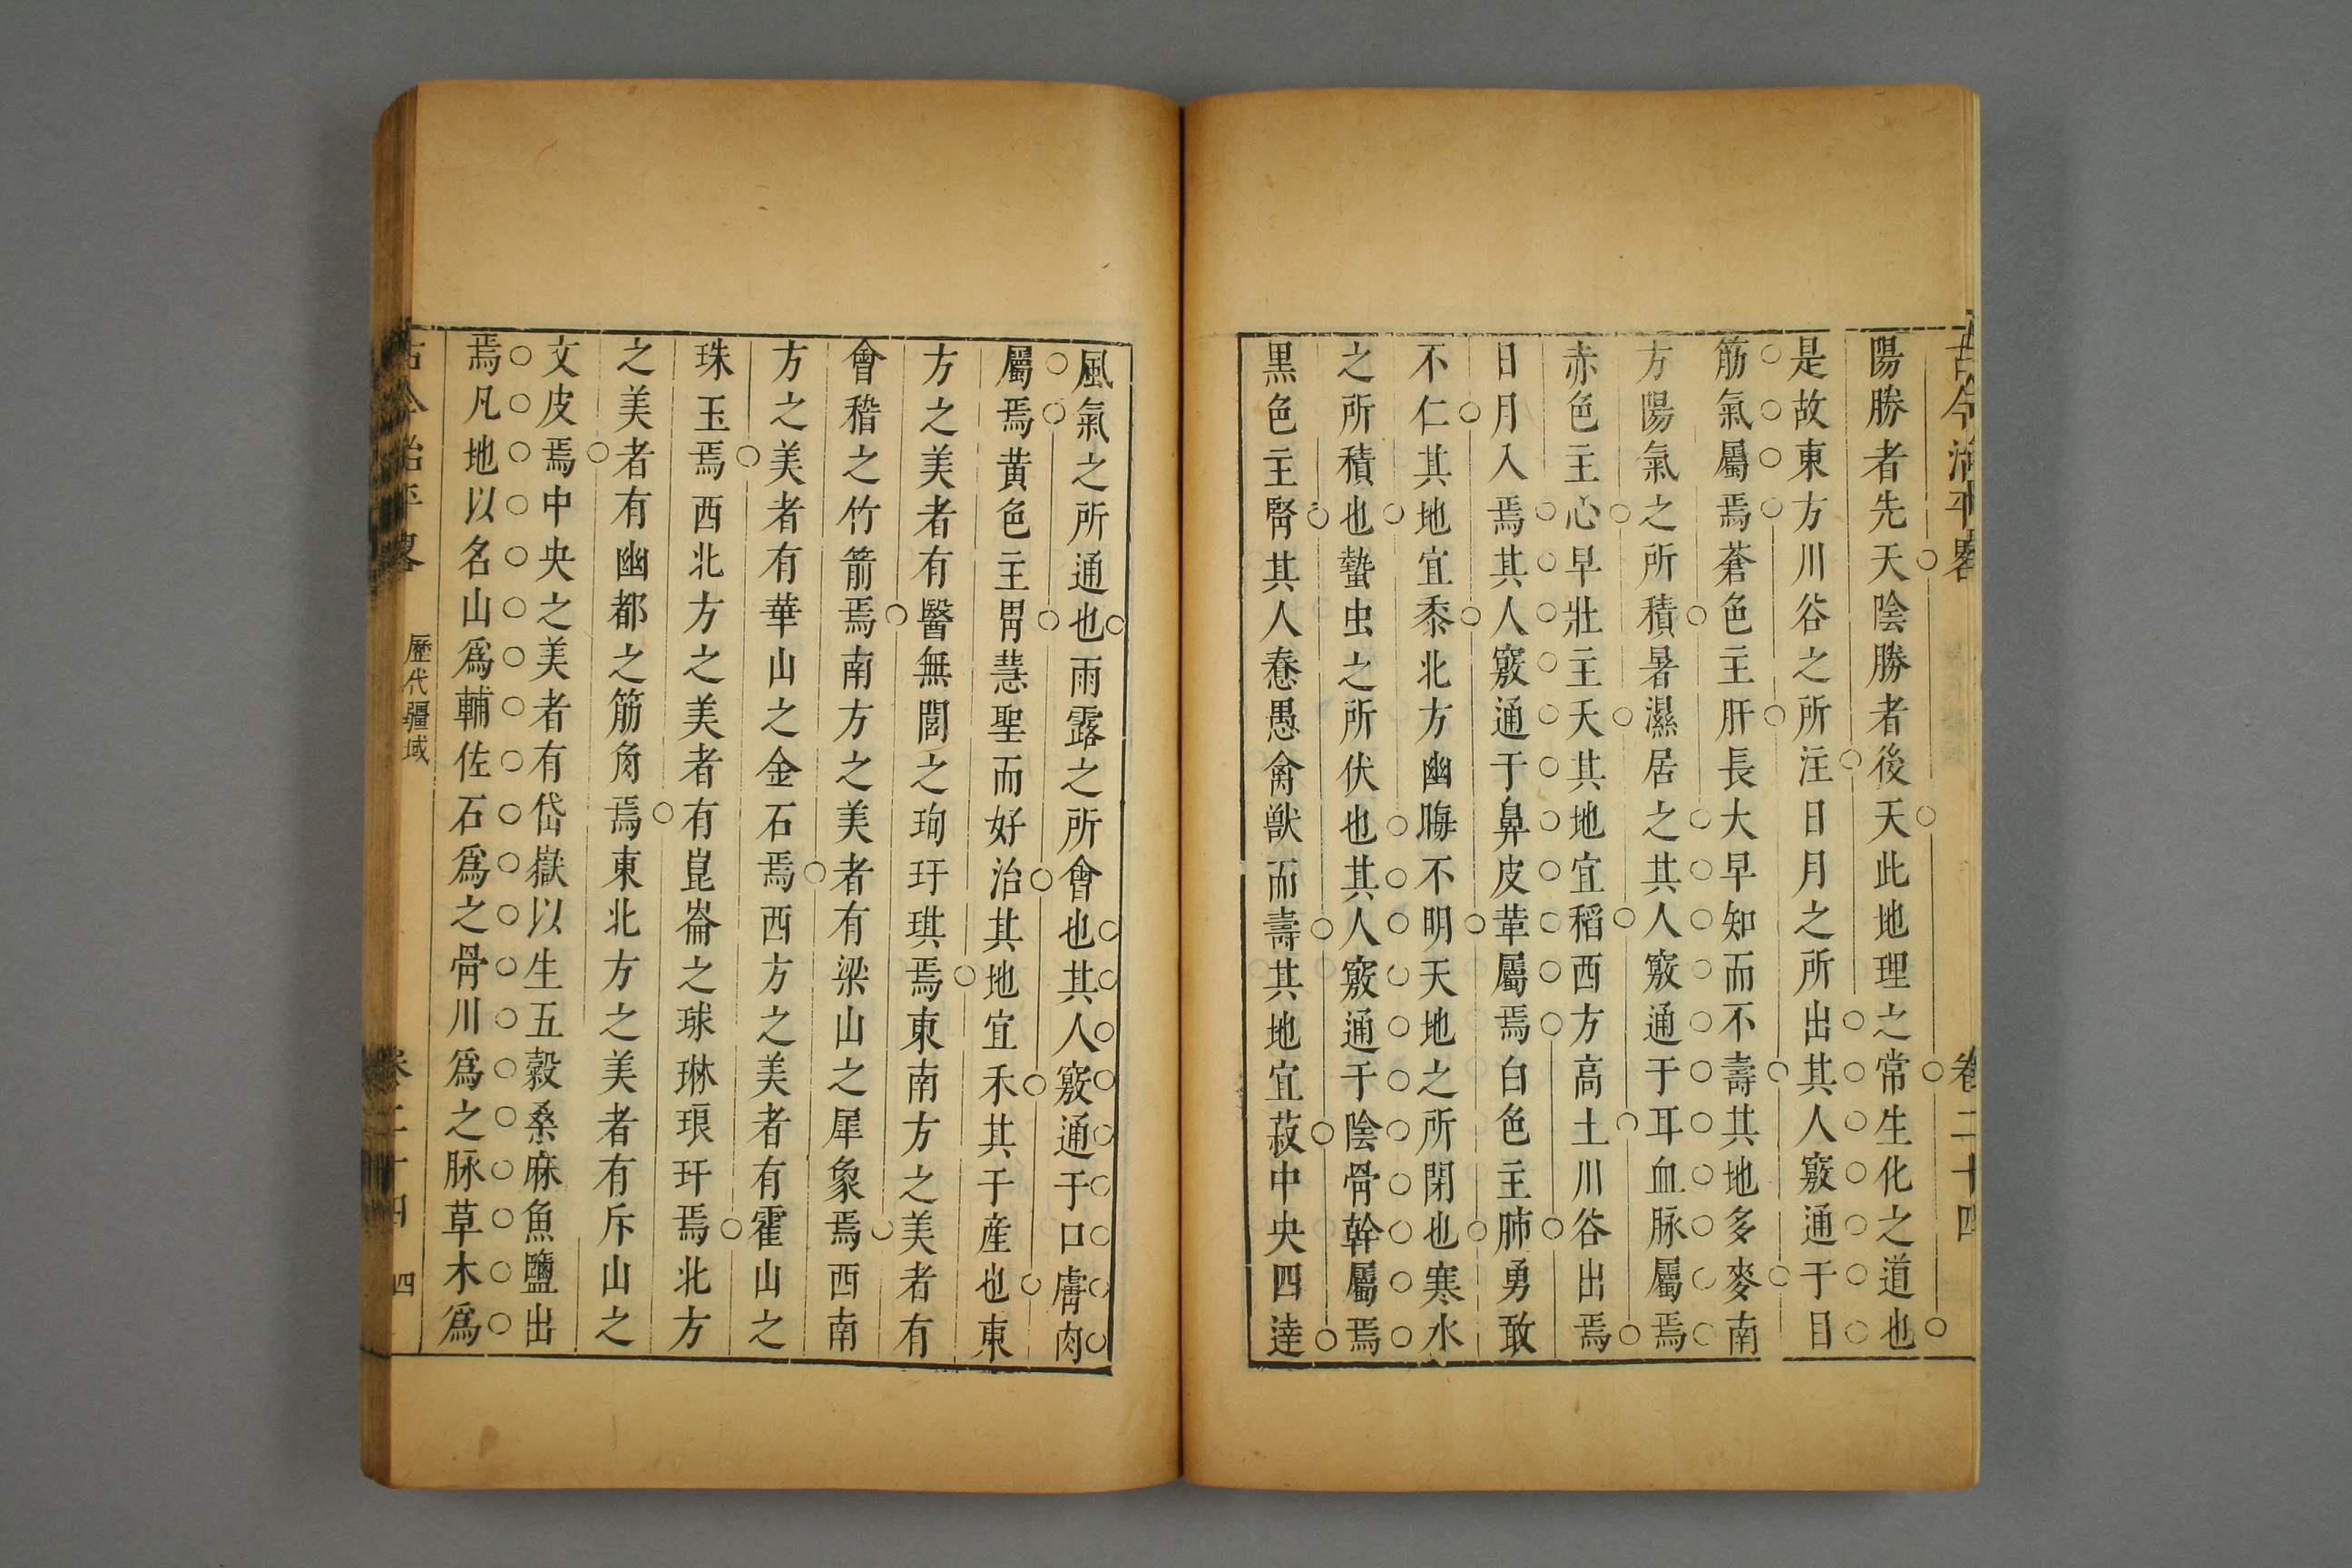 古今治平畧 卷二十四
陽勝者先天陰勝者後天此地理之常生化之道也
是故東方川谷之所注日月之所出其人竅通于目
筋氣屬焉蒼色主肝長大早知而不壽其地多麥南
方陽氣之所積暑濕居之其人竅通于耳血脉屬焉
赤色主心早壯主夭其地宜稻西方高土川谷出焉
日月入焉其人竅通于鼻皮革屬焉白色主肺勇敢
不仁其地宜黍北方幽晦不明天地之所閉也寒水
之所積也蟄虫之所伏也其人竅通于陰骨幹屬焉
黑色主腎其人惷愚禽獸而壽其地宜菽中央四達
風氣之所通也雨露之所會也其人竅通于口膚肉
屬焉黃色主胃慧聖而好治其地宜禾其于產也東
方之美者有醫無閭之珣玗琪焉東南方之美者有
會稽之竹箭焉南方之美者有梁山之犀象焉西南
方之美者有華山之金石焉西方之美者有霍山之
珠玉焉西北方之美者有崑崙之球琳琅玕焉北方
之美者有幽都之筋角焉東北方之美者有斥山之
文皮焉中央之美者有岱嶽以生五穀桑麻魚鹽出
焉凡地以名山爲輔佐石爲之骨川爲之脉草木爲
古今治平畧 歷代疆域 卷二十四 四